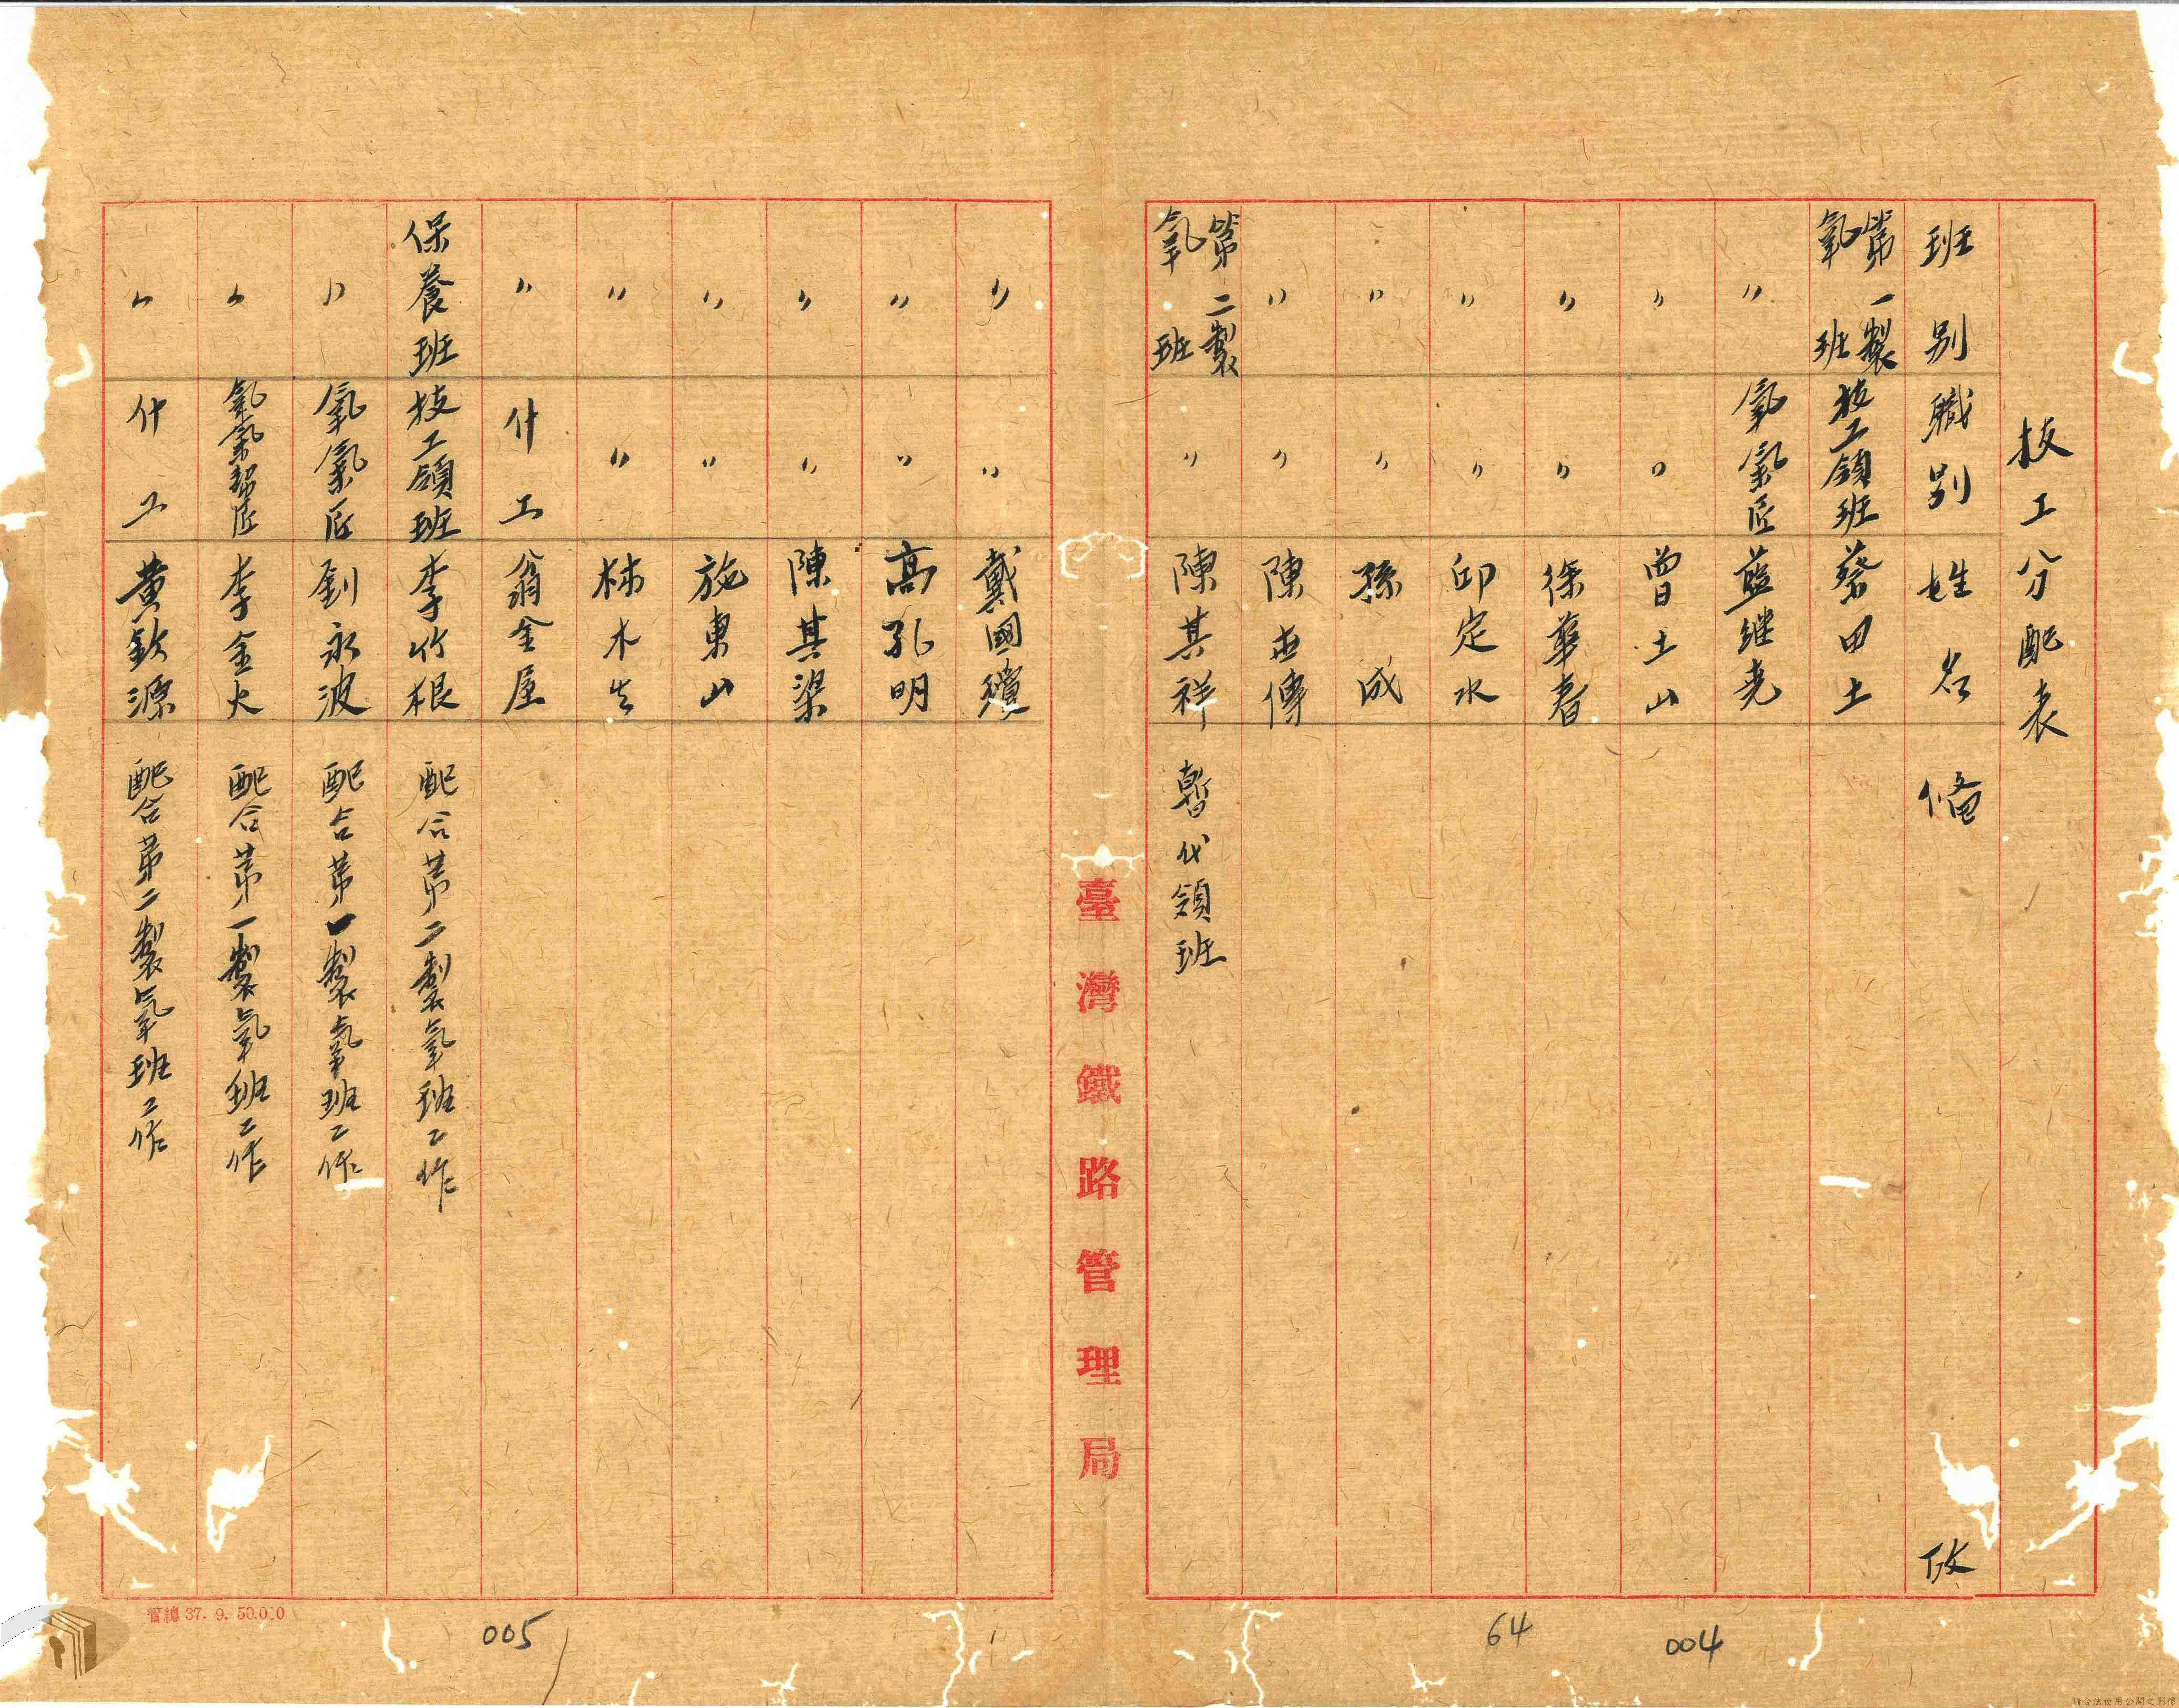 技工分配表
班別 職別 姓名 備 攷
第一製氧班 技工領班 蔡田土
〃 氧氣匠 藍継尭
〃 〃 曾土山
〃 〃 徐華春
〃 〃 邱定水
〃 〃 孫成
〃 〃 陳 傳
第二製氧班 〃 陳其祥 暫代領班
臺灣鐵路管理局
〃 〃 戴國
〃 〃 高孔明
〃 〃 陳其梁
〃 〃 施東山
〃 〃 林木生
〃 什工 翁金屋
保養班 技工領班 李竹根 配合第二製氧班工作
〃 氧氣匠 劉永波 配合第一製氧班工作
〃 氧氣幫匠 李金火 配合第一製氧班工作
〃 什工 黄欽源 配合第二製氧班工作
管總 37. 9. 50.000
005
64
004